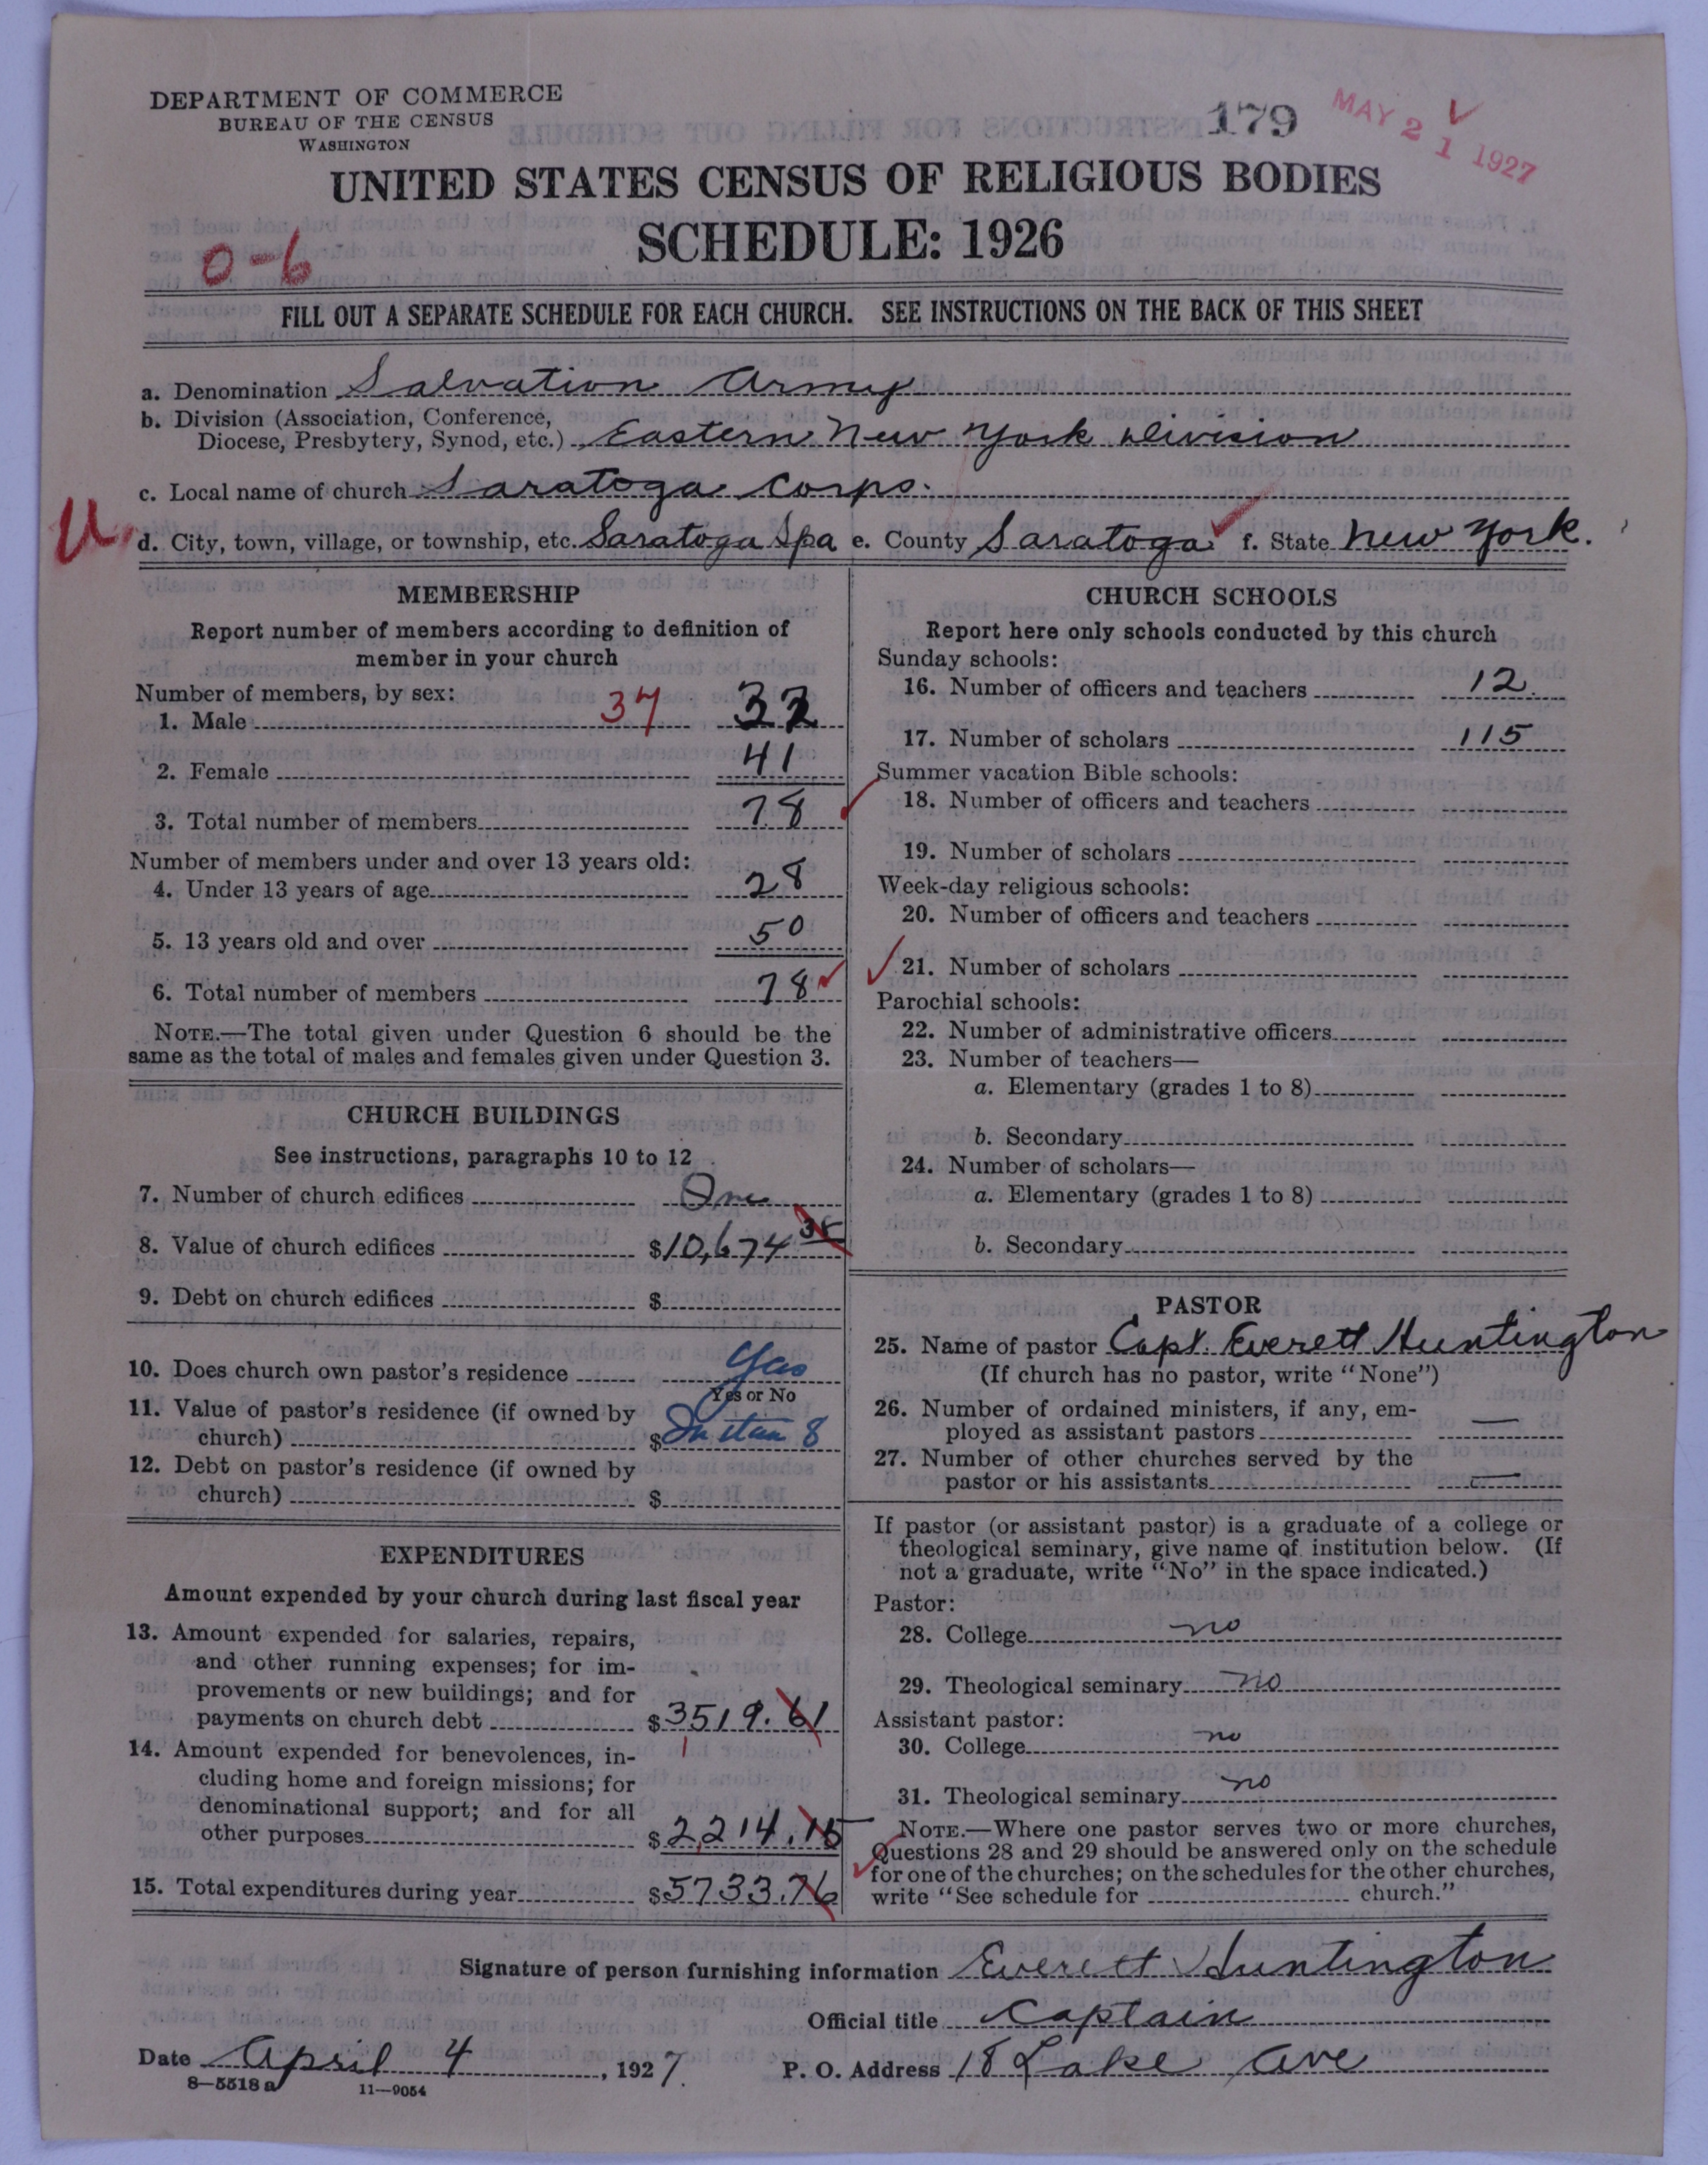 DEPARTMENT OF COMMERCE
BUREAU OF THE CENSUS
WASHINGTON
179
MAY 21 1927
UNITED STATES CENSUS OF RELIGIOUS BODIES
SCHEDULE: 1926
0-6
FILL OUT A SEPARATE SCHEDULE FOR EACH CHURCH. SEE INSTRUCTIONS ON THE BACK OF THIS SHEET
a. Denomination Salvation Army
b. Division (Association, Conference,
Diocese, Presbytery, Synod, etc.) Eastern New York Division
c. Local name of church Saratoga Corps.
U
d. City, town, village, or township, etc. Saratoga Spa e. County Saratoga f. State New York.
MEMBERSHIP
Report number of members according to definition of
member in your church
Number of members, by sex:
1. Male 37
2. Female 41
3. Total number of members 78
Number of members under and over 13 years old:
4. Under 13 years of age 28
5. 13 years old and over 50
6. Total number of members 78
NOTE.—The total given under Question 6 should be the
same as the total of males and females given under Question 3.
CHURCH BUILDINGS
See instructions, paragraphs 10 to 12
7. Number of church edifices One
8. Value of church edifices $10,674 35
9. Debt on church edifices $
10. Does church own pastor's residence Yes
Yes or No
11. Value of pastor's residence (if owned by
church) $ In item 8
12. Debt on pastor's residence (if owned by
church) $
EXPENDITURES
Amount expended by your church during last fiscal year
13. Amount expended for salaries, repairs,
and other running expenses; for im-
provements or new buildings; and for
payments on church debt $3519.61
14. Amount expended for benevolences, in-
cluding home and foreign missions; for
denominational support; and for all
other purposes $2,214.15
15. Total expenditures during year $5733.76
CHURCH SCHOOLS
Report here only schools conducted by this church
Sunday schools:
16. Number of officers and teachers 12
17. Number of scholars 115
Summer vacation Bible schools:
18. Number of officers and teachers
19. Number of scholars
Week-day religious schools:
20. Number of officers and teachers
21. Number of scholars
Parochial schools:
22. Number of administrative officers
23. Number of teachers—
a. Elementary (grades 1 to 8)
b. Secondary
24. Number of scholars—
a. Elementary (grades 1 to 8)
b. Secondary
PASTOR
25. Name of pastor Capt. Everett Huntington
(If church has no pastor, write "None")
26. Number of ordained ministers, if any, em-
ployed as assistant pastors —
27. Number of other churches served by the
pastor or his assistants —
If pastor (or assistant pastor) is a graduate of a college or
theological seminary, give name of institution below. (If
not a graduate, write "No" in the space indicated.)
Pastor:
28. College no
29. Theological seminary no
Assistant pastor:
30. College no
31. Theological seminary no
NOTE.—Where one pastor serves two or more churches,
Questions 28 and 29 should be answered only on the schedule
for one of the churches; on the schedules for the other churches,
write "See schedule for church."
Signature of person furnishing information Everett Huntington
Official title Captain
Date April 4, 1927.
P. O. Address 18 Lake Ave
8—5518 a
11—9054